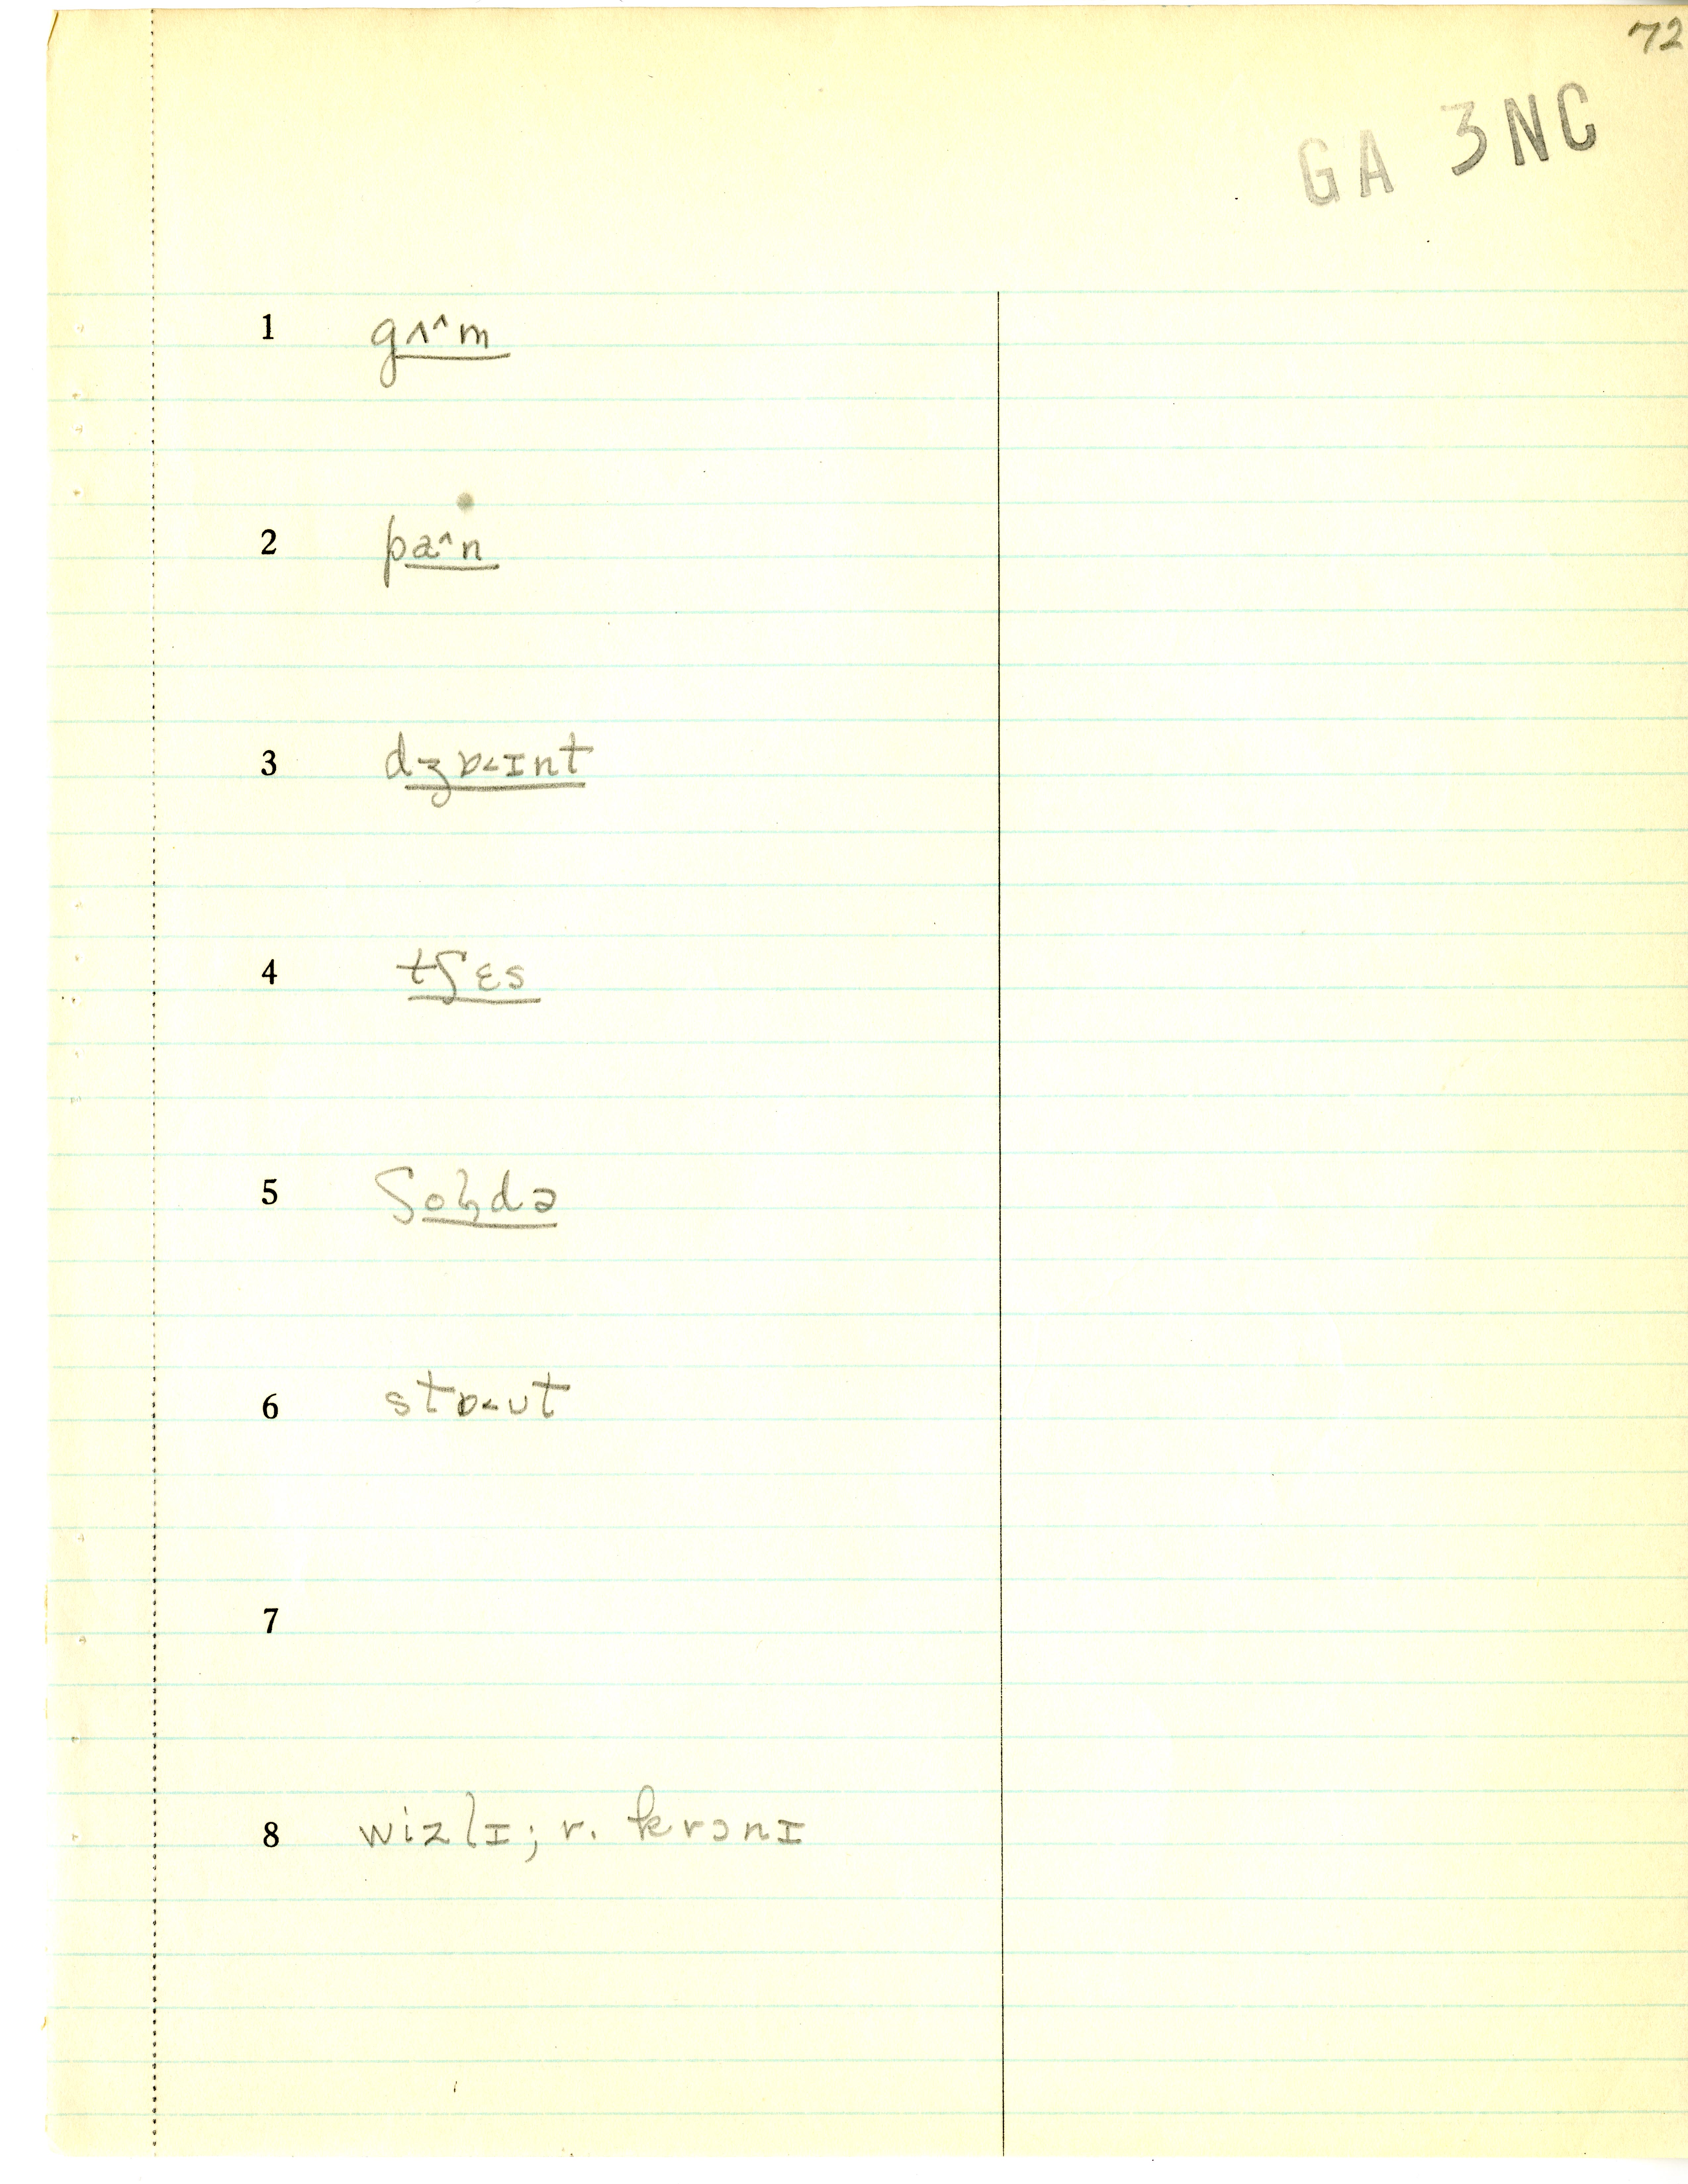 72
GA 3NC
1 gʌ^m
2 pa^n
3 dʒɒ<ɪnt
4 tʃɛs
5 ʃoɫdə
6 stɒ<ut
7
8 wizlɪ; r. krɔnɪ